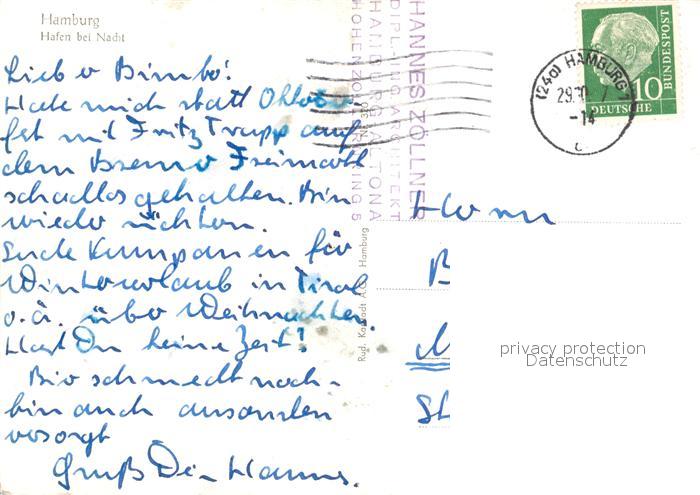 Hamburg
Hafen bei Nacht
Lieber Bimbo!
Habe mich statt Oktober
fest mit Fritz Trapp auf
dem Bremer Freimarkt
schadlos gehalten. Bin
wieder nüchtern.
Suche Kumpanen für
Winterurlaub in Tirol
o.ä. über Weihnachten.
Hast Du keine Zeit?
Bier schmeckt noch -
bin auch ansonsten
versorgt
Gruß Dein Hannes.
HANNES ZÖLLNER
DIPL.-ING. ARCHITEKT
HAMBURG-ALTONA
HOHENZOLLERNRING 5
Rud. Karstadt A.G. Hamburg
(24a) HAMBURG
29.10. 7
-14
c
DEUTSCHE
BUNDESPOST
10
Herrn
B
M
St
privacy protection
Datenschutz